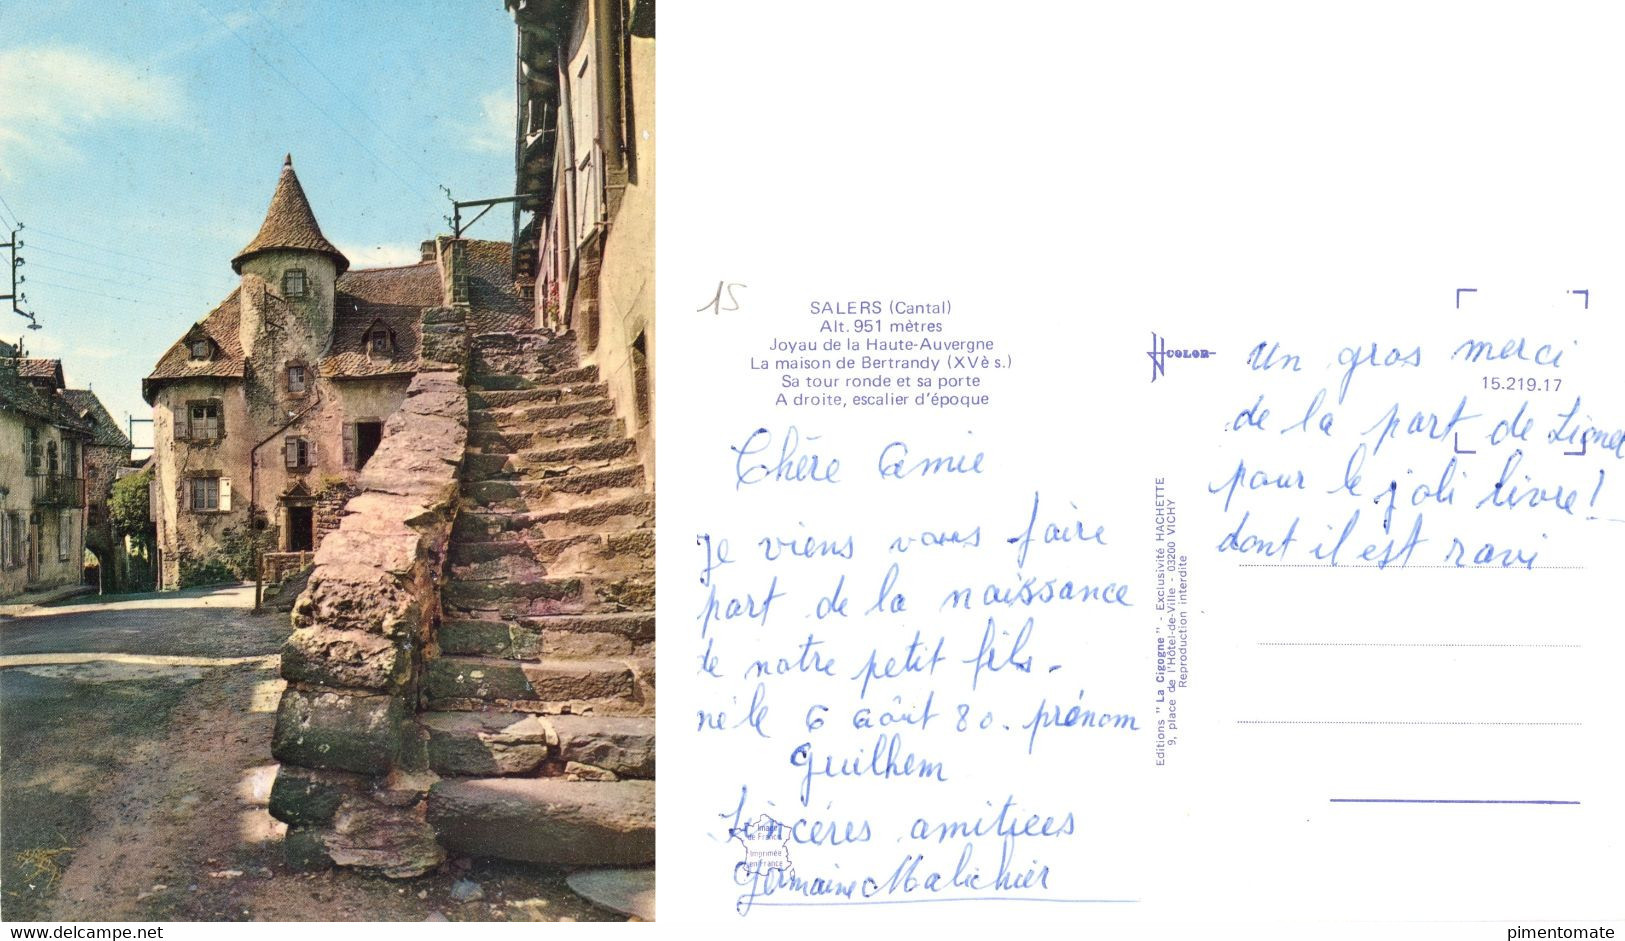 15
SALERS (Cantal)
Alt. 951 mètres
Joyau de la Haute-Auvergne
La maison de Bertrandy (XVè s.)
Sa tour ronde et sa porte
A droite, escalier d'époque
Chère Amie
Je viens vous faire
part de la naissance
de notre petit fils -
né le 6 août 80. prénom
Guilhem
Sincéres amitiees
Germaine Malichier
Image
de France
Imprimée
en France
Editions "La Cigogne" - Exclusivité HACHETTE
9, place de l'Hôtel-de-Ville - 03200 VICHY
Reproduction interdite
COLOR
15.219.17
un gros merci
de la part de Lionel
pour le joli livre!
dont il est ravi
www.delcampe.net
pimentomate